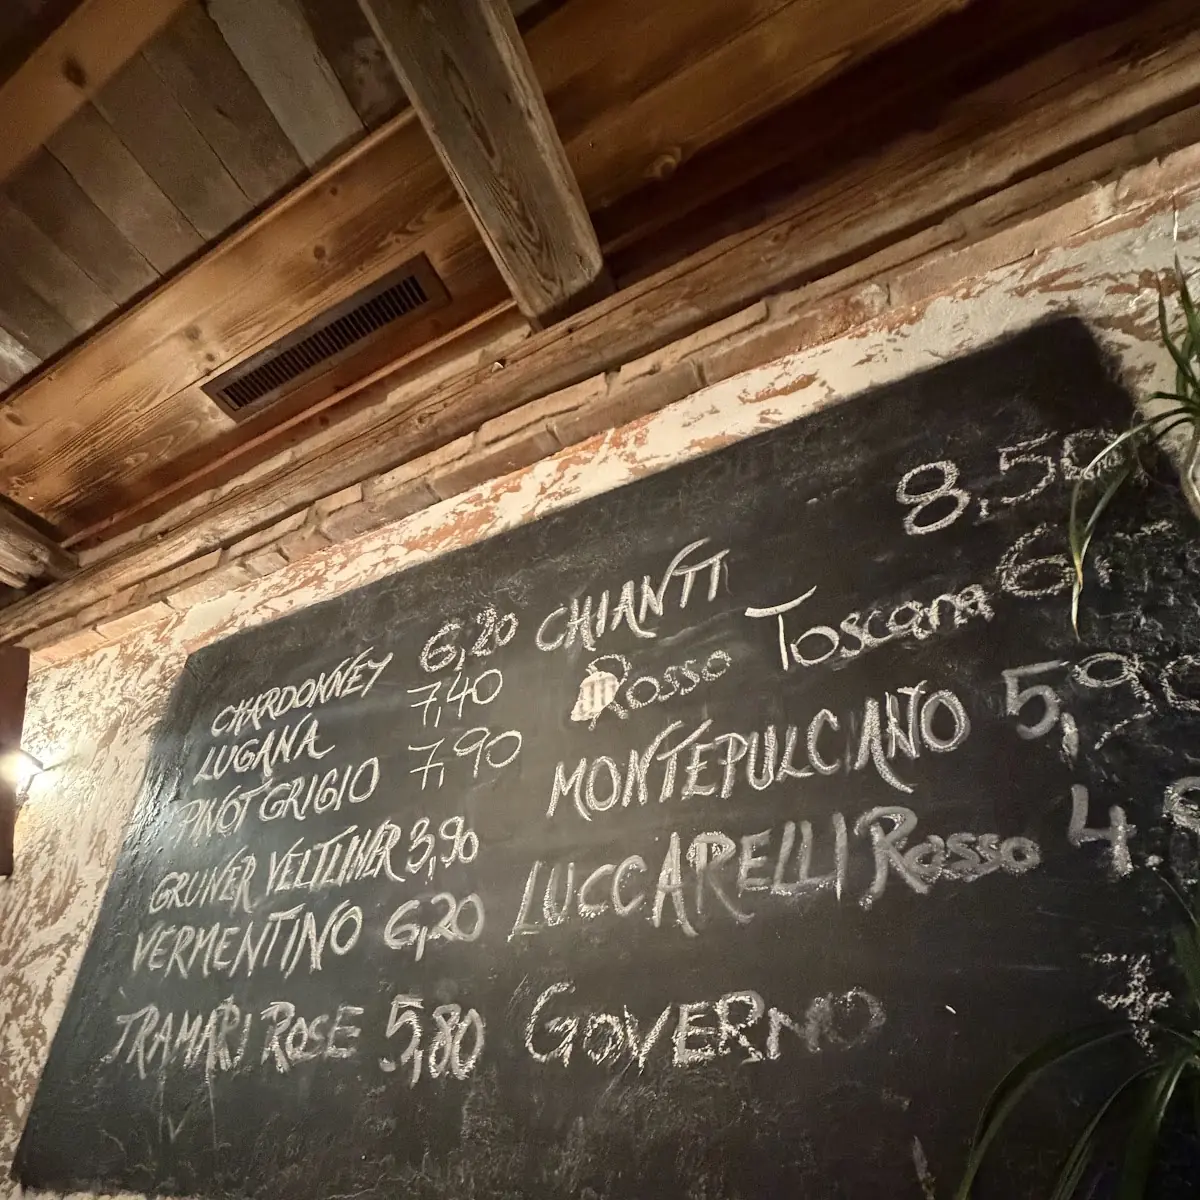 CHARDONNEY 6,20
LUGANA 7,40
PINOT GRIGIO 7,90
GRUNER VELTLINER 3,90
VERMENTINO 6,20
TRAMARI ROSE 5,80
CHIANTI 8,50
Rosso Toscana 6,
MONTEPULCIANO 5,90
LUCCARELLI Rosso 4.
GOVERNO 7